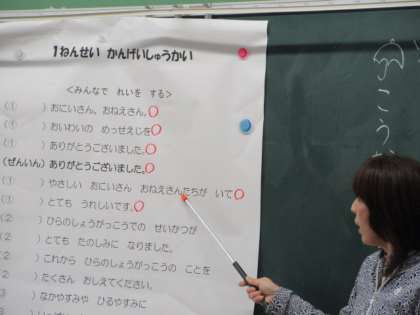 1ねんせい かんげいしゅうかい
＜みんなで れいを する＞
(① ）おにいさん。おねえさん。
(① ）おいわいの めっせえじを
(① ）ありがとうございました。
(ぜんいん) ありがとうございました。
(① ）やさしい おにいさん おねえさんたちが いて
(① ）とても うれしいです。
(② ）ひらのしょうがっこうでの せいかつが
(② ）とても たのしみに なりました。
(② ）これから ひらのしょうがっこうの ことを
(② ）たくさん おしえてください。
(③ ）なかやすみや ひるやすみに